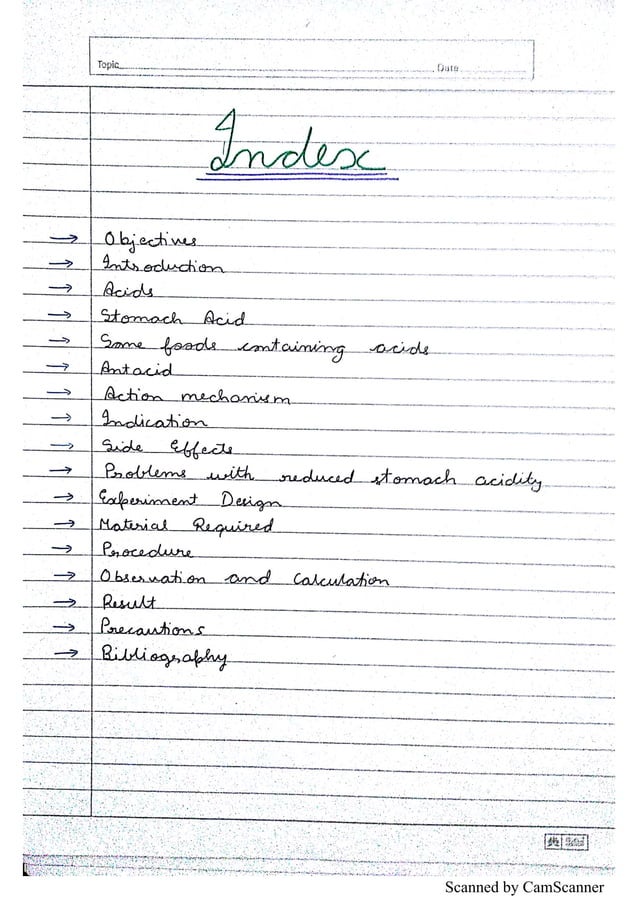 Topic
Date
Index
→ Objectives
→ Introduction
→ Acids
→ Stomach Acid
→ Some foods containing acids
→ Antacid
→ Action mechanism
→ Indication
→ Side Effects
→ Problems with reduced stomach acidity
→ Experiment Design
→ Material Required
→ Procedure
→ Observation and Calculation
→ Result
→ Precautions
→ Bibliography
Scanned by CamScanner